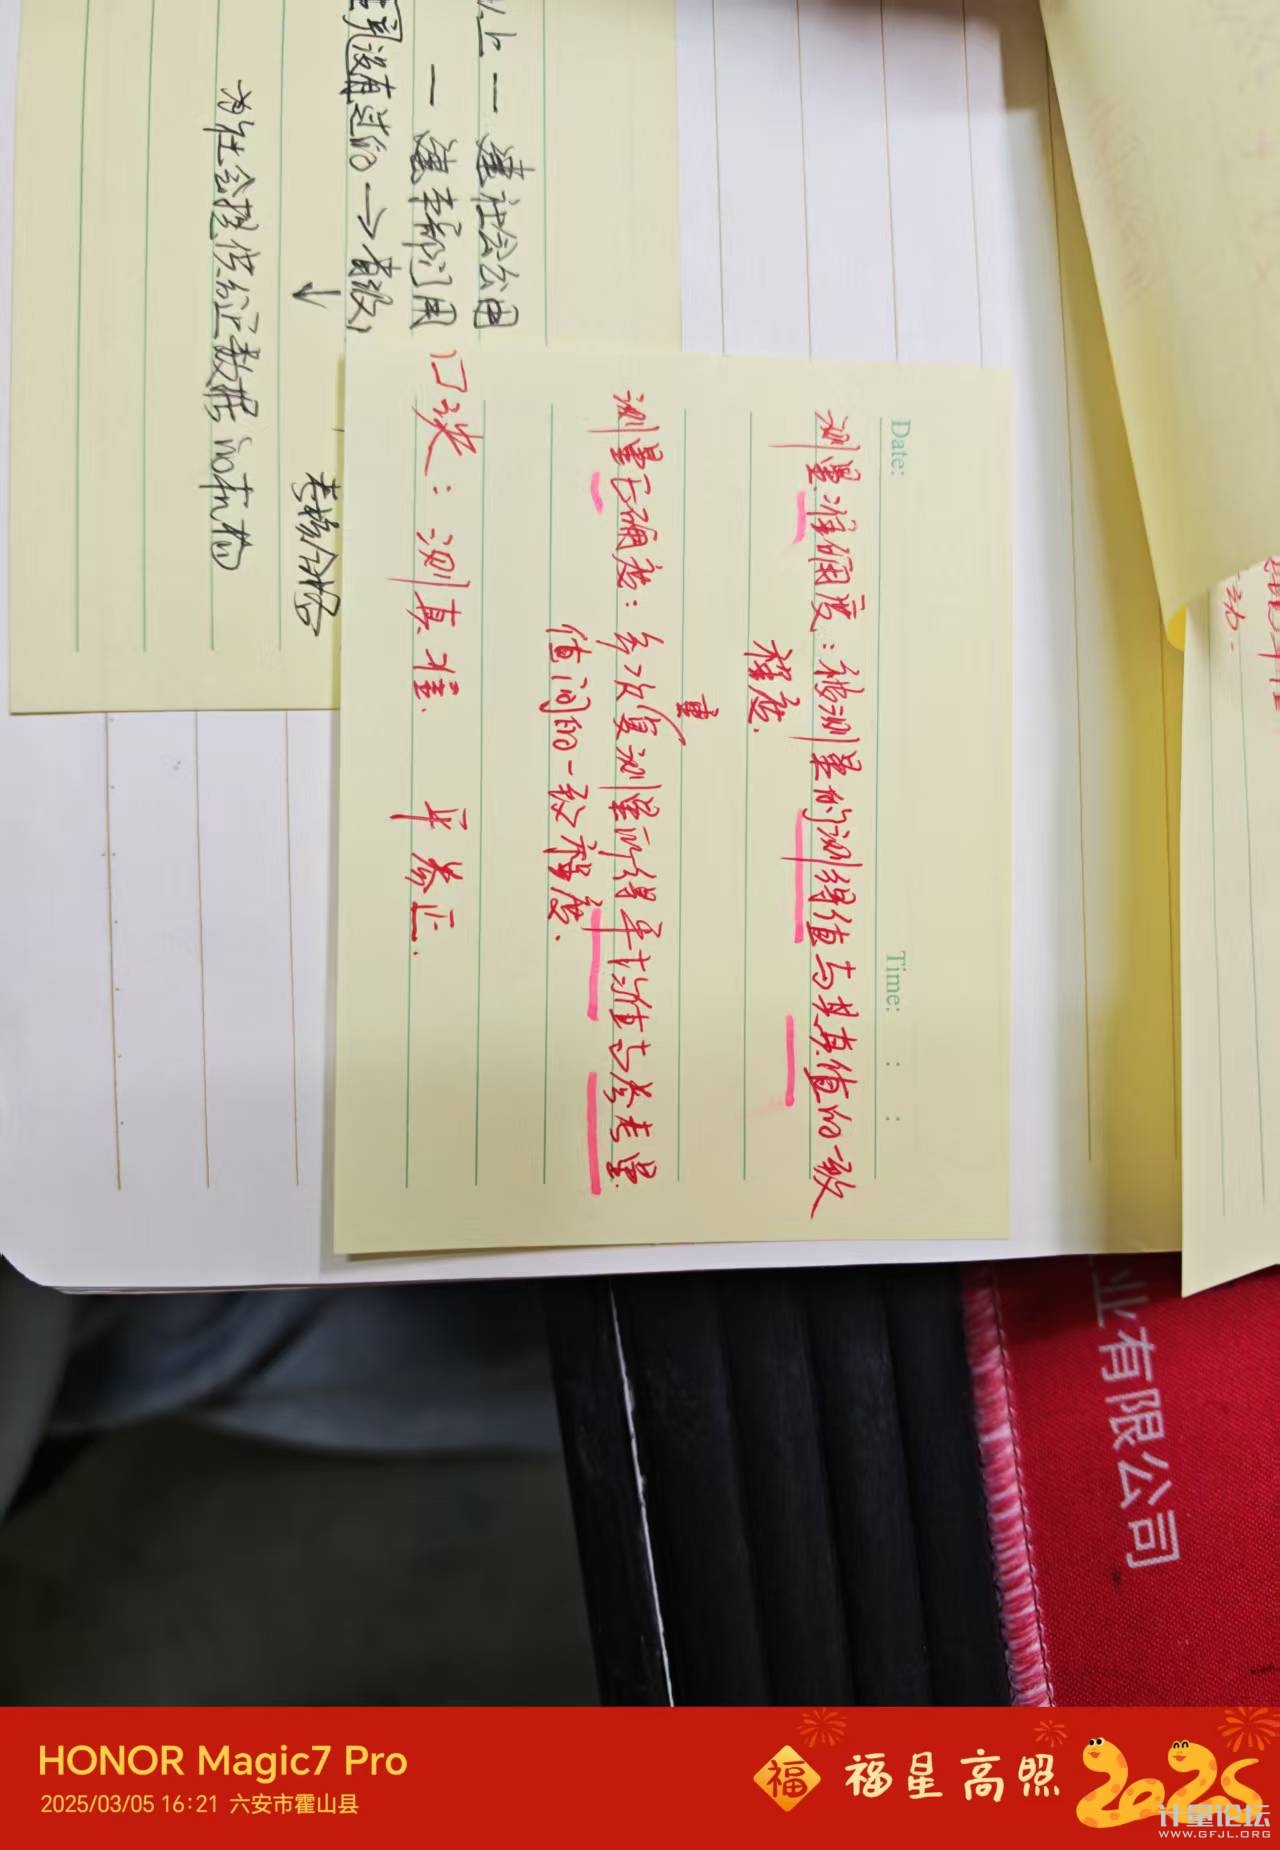 Date:
Time: : :
测量准确度：被测量的测得值与其真值的一致
程度.
测量正确度：多次复测量所得平均值与参考量
重
值间的一致程度.
口诀：测真准. 平参正.
以上一 建社会公用
一 建本部门用
没有过的→有效,
↓
考核合格
为社会提供公证数据的机构
业有限公司
HONOR Magic7 Pro
2025/03/05 16:21 六安市霍山县
福 福星高照 2025
计量论坛
WWW.GFJL.ORG